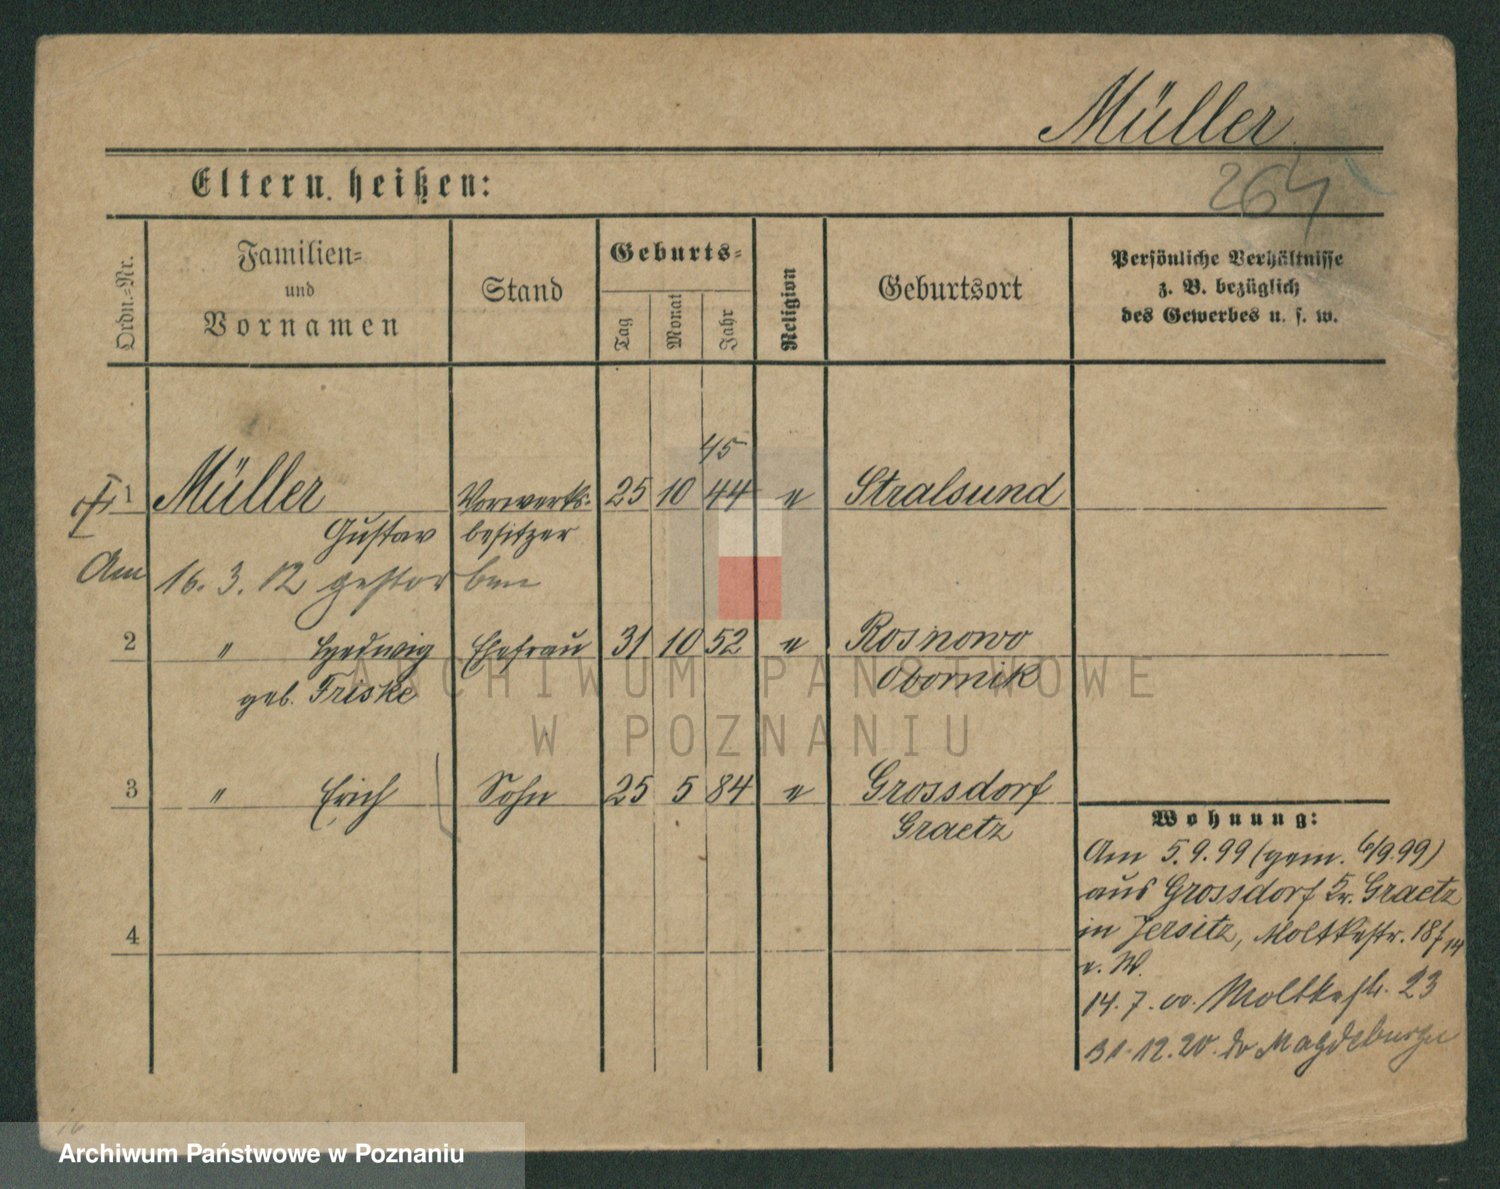 Müller
264
Eltern heißen:
Ordn.=Nr.
Familien=
und
Vornamen
Stand
Geburts=
Tag
Monat
Jahr
Religion
Geburtsort
Persönliche Verhältnisse
z. B. bezüglich
des Gewerbes u. s. w.
45
1 Müller Vorwerks= 25 10 44 e Stralsund
Gustav besitzer
Am 16. 3. 12 gestorben
2 " Hedwig Ehefrau 31 10 52 e Rosnowo
geb. Friske Obornik
3 " Erich Sohn 25 5 84 e Grossdorf
Graetz
4
Wohnung:
Am 5.9.99 (gem. 6/9.99)
aus Grossdorf Kr. Graetz
in Jersitz, Moltkestr. 18
14
e. W.
14. 7. 00. Moltkestr. 23
31. 12. 20. Magdeburg
ARCHIWUM PAŃSTWOWE
W POZNANIU
16
Archiwum Państwowe w Poznaniu